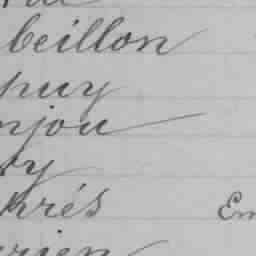 beillon
puy
njou
ty
rrés Em
rien